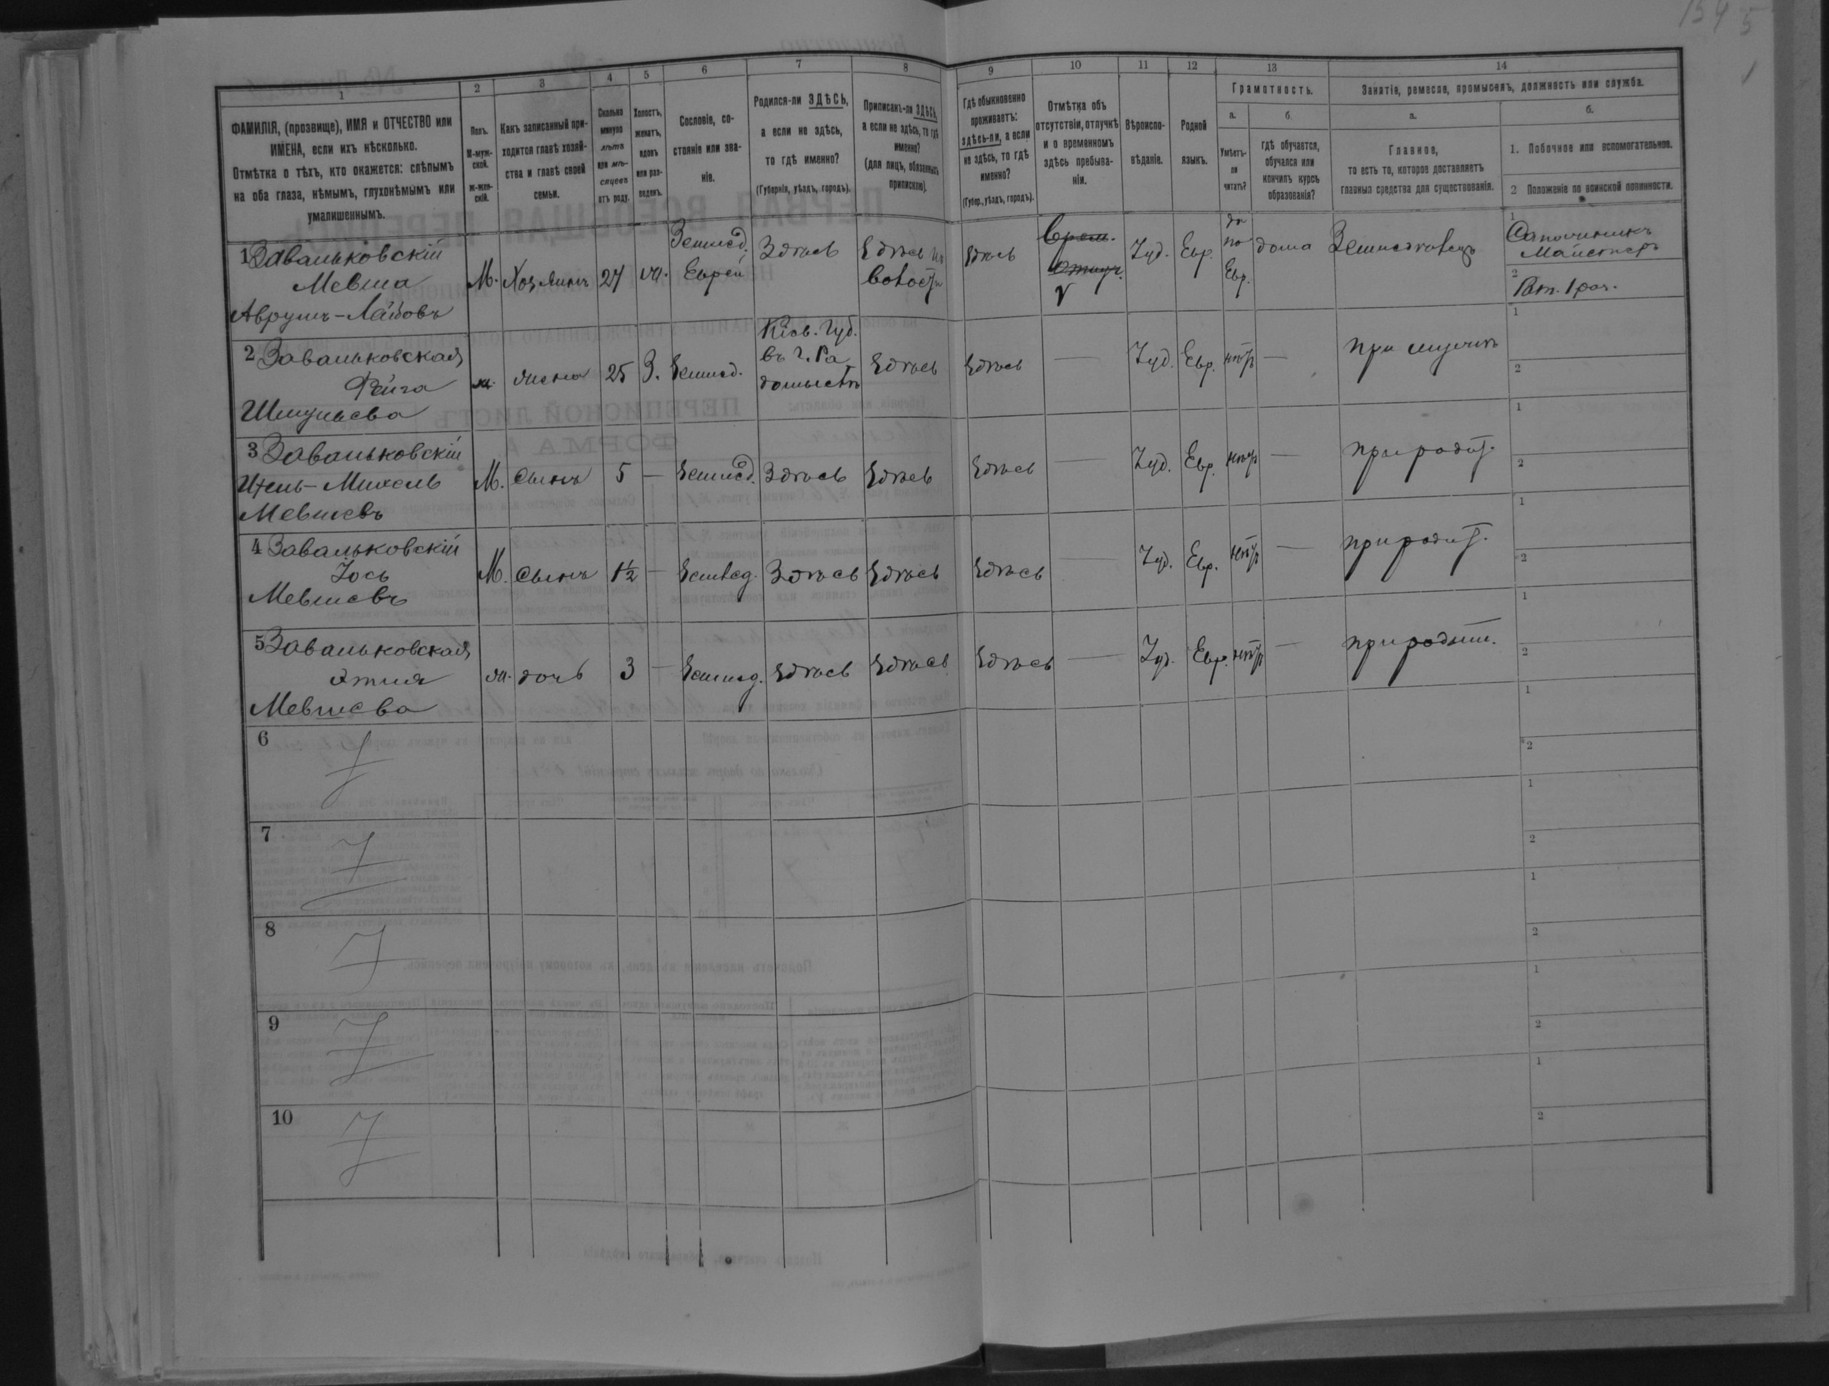 1545
1
1
ФАМИЛІЯ, (прозвище), ИМЯ и ОТЧЕСТВО или
ИМЕНА, если ихъ нѣсколько.
Отмѣтка о тѣхъ, кто окажется: слѣпымъ
на оба глаза, нѣмымъ, глухонѣмымъ или
умалишеннымъ.
2
Полъ.
М-муж-
ской.
ж-жен-
скій.
3
Какъ записанный при-
ходится главѣ хозяй-
ства и главѣ своей
семьи.
4
Сколько
минуло
лѣтъ
или мѣ-
сяцевъ
отъ роду.
5
Холостъ,
женатъ,
вдовъ
или раз-
веденъ.
6
Сословіе, со-
стояніе или зва-
ніе.
7
Родился-ли ЗДѢСЬ,
а если не здѣсь,
то гдѣ именно?
(Губернія, уѣздъ, городъ).
8
Приписанъ-ли ЗДѢСЬ,
а если не здѣсь, то гдѣ
именно?
(для лицъ, обязанныхъ
припискою).
9
Гдѣ обыкновенно
проживаетъ:
здѣсь-ли, а если
не здѣсь, то гдѣ
именно?
(Губер., уѣздъ, городъ).
10
Отмѣтка объ
отсутствіи, отлучкѣ
и о временномъ
здѣсь пребыва-
ніи.
11
Вѣроиспо-
вѣданіе.
12
Родной
языкъ.
13
Грамотность.
а.
Умѣетъ-
ли
читать?
б.
гдѣ обучается,
обучался или
кончилъ курсъ
образованія?
14
Занятія, ремесла, промыселъ, должность или служба.
а.
Главное,
то есть то, которое доставляетъ
главныя средства для существованія.
б.
1. Побочное или вспомогательное.
2 Положеніе по воинской повинности.
1 Завальковскій
Мевша
Аврумъ-Лейбовъ
М. Хозяинъ 27
Землед.
Еврей
Здѣсь
Здѣсь
Здѣсь
Врем.
отлуч.
Іуд. Евр.
да
по
Евр.
дома
Землепашецъ
1
Сапожникъ
2
Рат. 1 раз.
2 Завальковская
Фейга
Шмулева
ж. жена 25 З. Землед.
Кіев. Губ.
въ г. Ра
домыслѣ
Здѣсь Здѣсь — Іуд. Евр. нѣтъ — при мужѣ
1
2
3 Завальковскій
Ицель-Михель
Мевшевъ
М. сынъ 5 — Землед. Здѣсь Здѣсь Здѣсь — Іуд. Евр. нѣтъ — при родит.
1
2
4 Завальковскій
Іось
Мевшевъ
М. сынъ 1½ — Землед. Здѣсь Здѣсь Здѣсь — Іуд. Евр. нѣтъ — при родит.
1
2
5 Завальковская
Мевшева
ж. дочь 3 — Землед. Здѣсь Здѣсь Здѣсь — Іуд. Евр. нѣтъ — при родит.
1
2
6
1
2
7
1
2
8
1
2
9
1
2
10
1
2